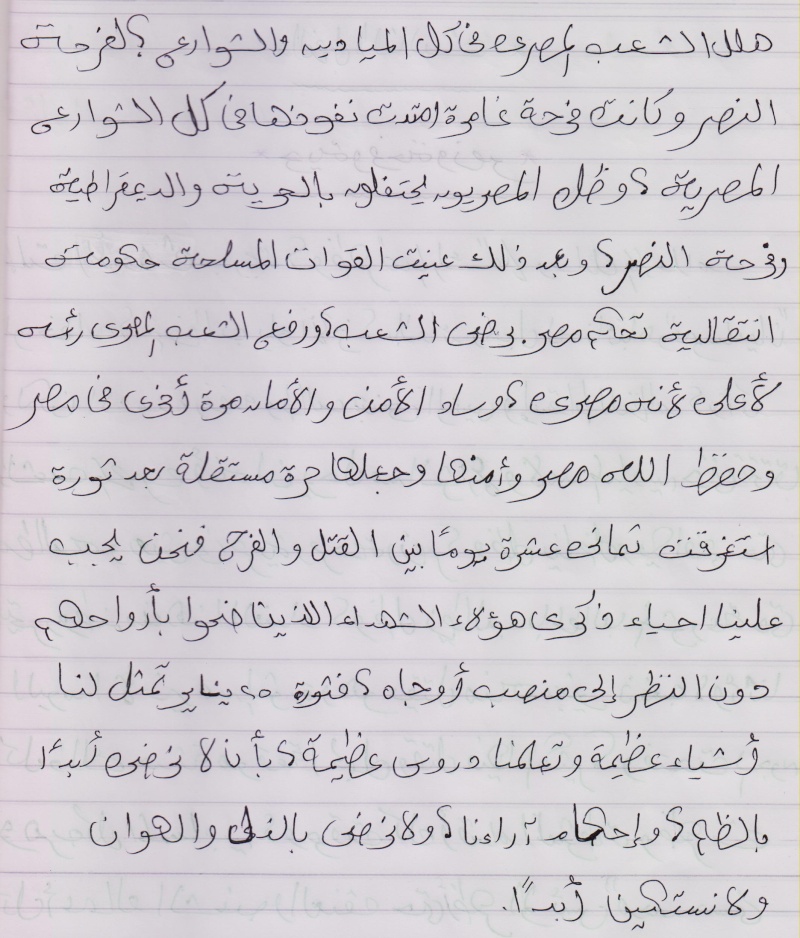 هلل الشعب المصرى فى كل الميادين والشوارع، لفرحة
النصر وكانت فرحة غامرة امتدت نفوذها فى كل الشوارع
المصرية، وظل المصريون يحتفلون بالحرية والديمقراطية
وفرحة النصر، وبعد ذلك عنيت القوات المسلحة حكومة
انتقالية تحكم مصر. رضى الشعب، ورفع الشعب المصرى رأسه
لأعلى لأنه مصرى، وساد الأمن والأمان مرة أخرى فى مصر
وحفظ الله مصر وأمنها وجعلها حرة مستقلة بعد ثورة
استغرقت ثمانى عشرة يومًا بين القتل والفرح فنحن يجب
علينا احياء ذكرى هؤلاء الشهداء الذين ضحوا بأرواحهم
دون النظر إلى منصب أو جاه، فثورة ٢٥ يناير تمثل لنا
أشياء عظيمة وتعلمنا دروس عظيمة، بأن لا نرضى أبدًا
بالظلم، وإحكام آراءنا، ولا نرضى بالذل والهوان
ولا نستكين أبدًا.